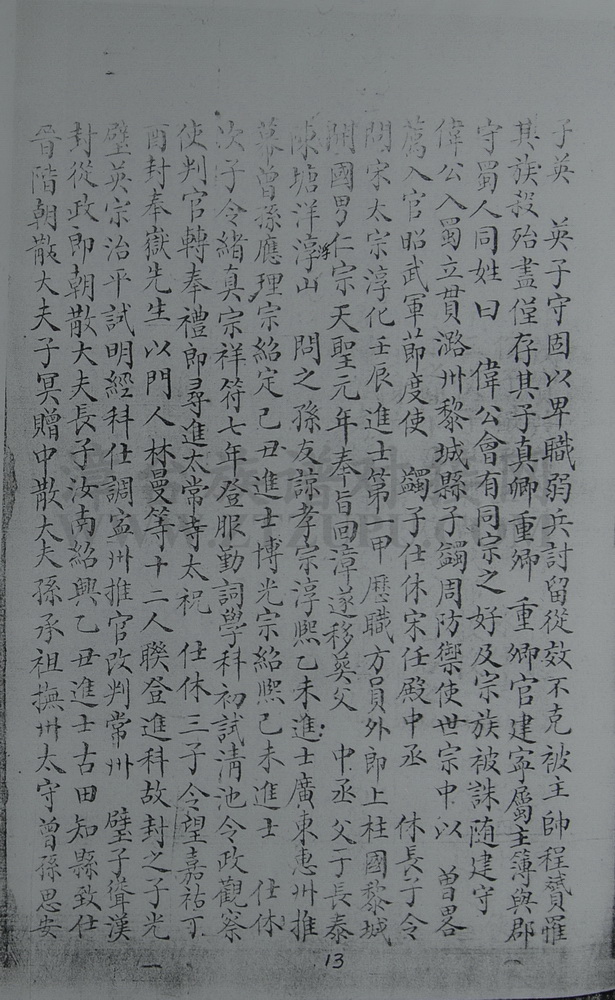 子英　英子守固以卑職弱兵討留從效不克被王帥程贇罹
其族殺殆盡僅存其子真卿重卿　重卿官建寧屬主簿與郡
守蜀人同姓曰　偉公會有同宗之好及宗族被誅随建守
偉公入蜀立貫潞州黎城縣子蠲周防禦使世宗中以　曾畧
薦入官昭武軍節度使　蠲子仕休宋任殿中丞　休長子令
問宋太宗淳化壬辰進士第一甲歷職方員外郎上柱國黎城
開國男仁宗天聖元年奉旨回漳遂移葬父　中丞父于長泰
陳塘洋淳山　問之孫友諒孝宗淳熙乙未進士廣東惠州推
幕曾孫應理宗紹定己丑進士博光宗紹熙己未進士　仕休
次子令緒真宗祥符七年登服勤詞學科初試清池令政觀察
使判官轉奉禮郎尋進太常寺太祝　仕休三子令望嘉祐丁
酉封奉嶽先生以門人林曼等十二人聯登進科故封之子光
璧英宗治平試明經科仕調宜州推官改判常州　璧子聳漢
封從政郎朝散大夫長子汝南紹興乙丑進士古田知縣致仕
晉階朝散大夫子冥贈中散大夫孫承祖撫州太守曾孫思安
13